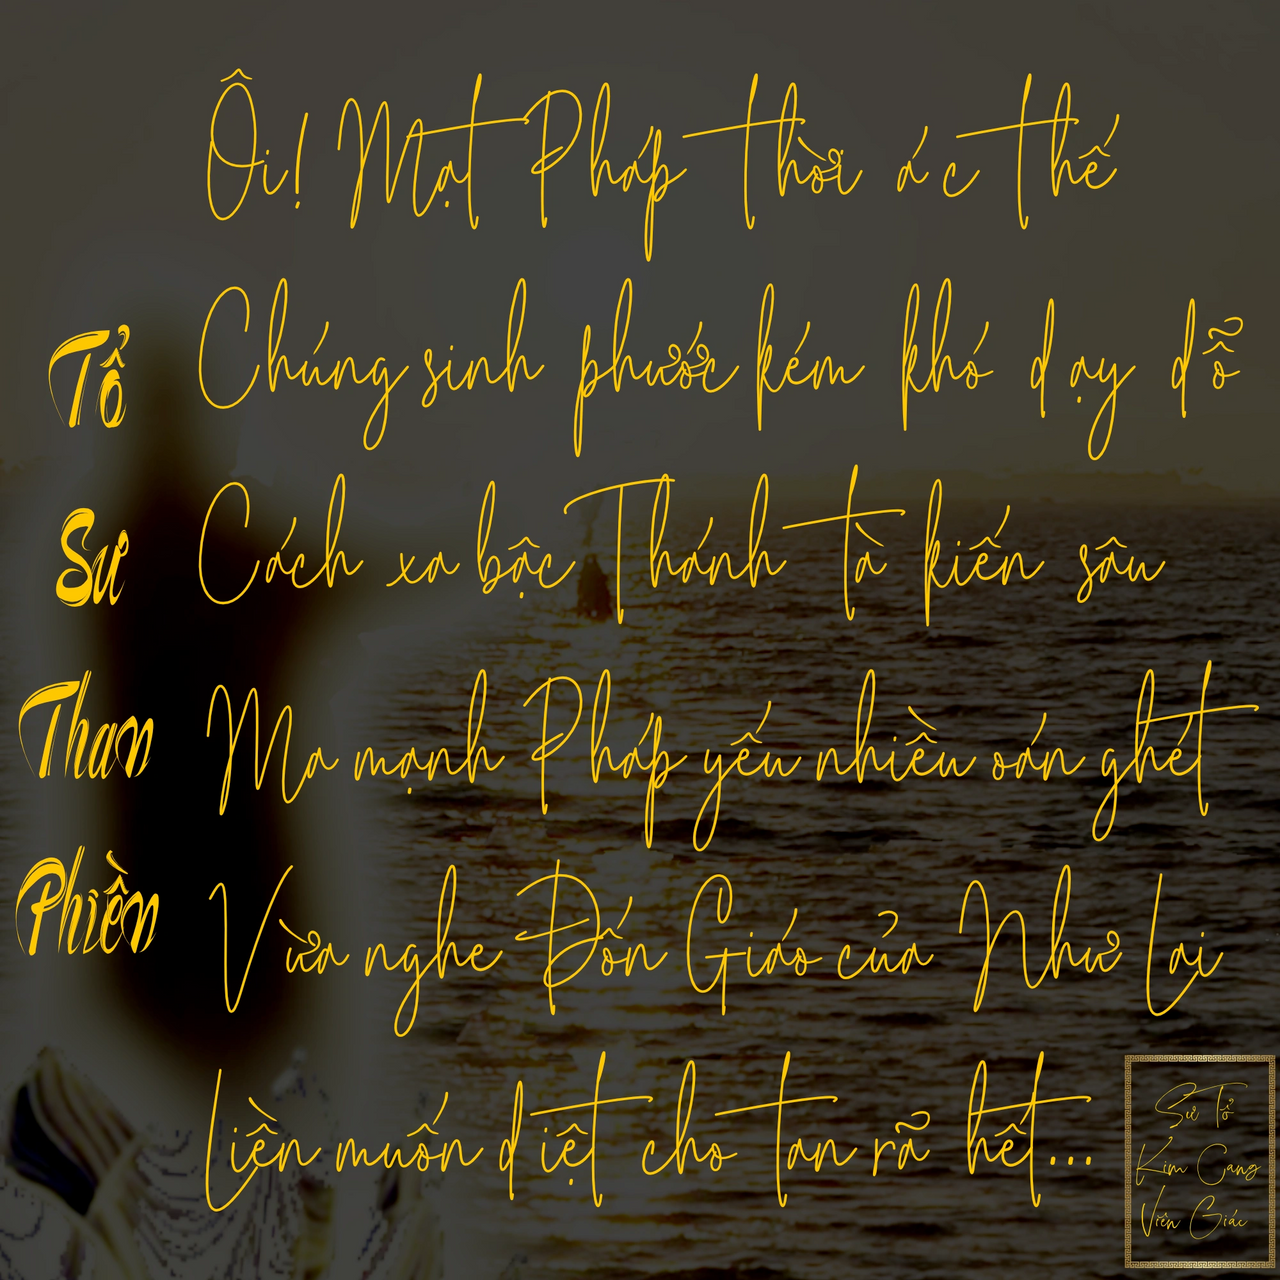 Tổ
Sư
Than
Phiền
Ôi! Mạt Pháp thời ác thế
Chúng sinh phước kém khó dạy dỗ
Cách xa bậc Thánh tà kiến sâu
Ma mạnh Pháp yếu nhiều oán ghét
Vừa nghe Đốn Giáo của Như Lai
Liền muốn diệt cho tan rã hết...
Sư Tổ
Kim Cang
Viên Giác